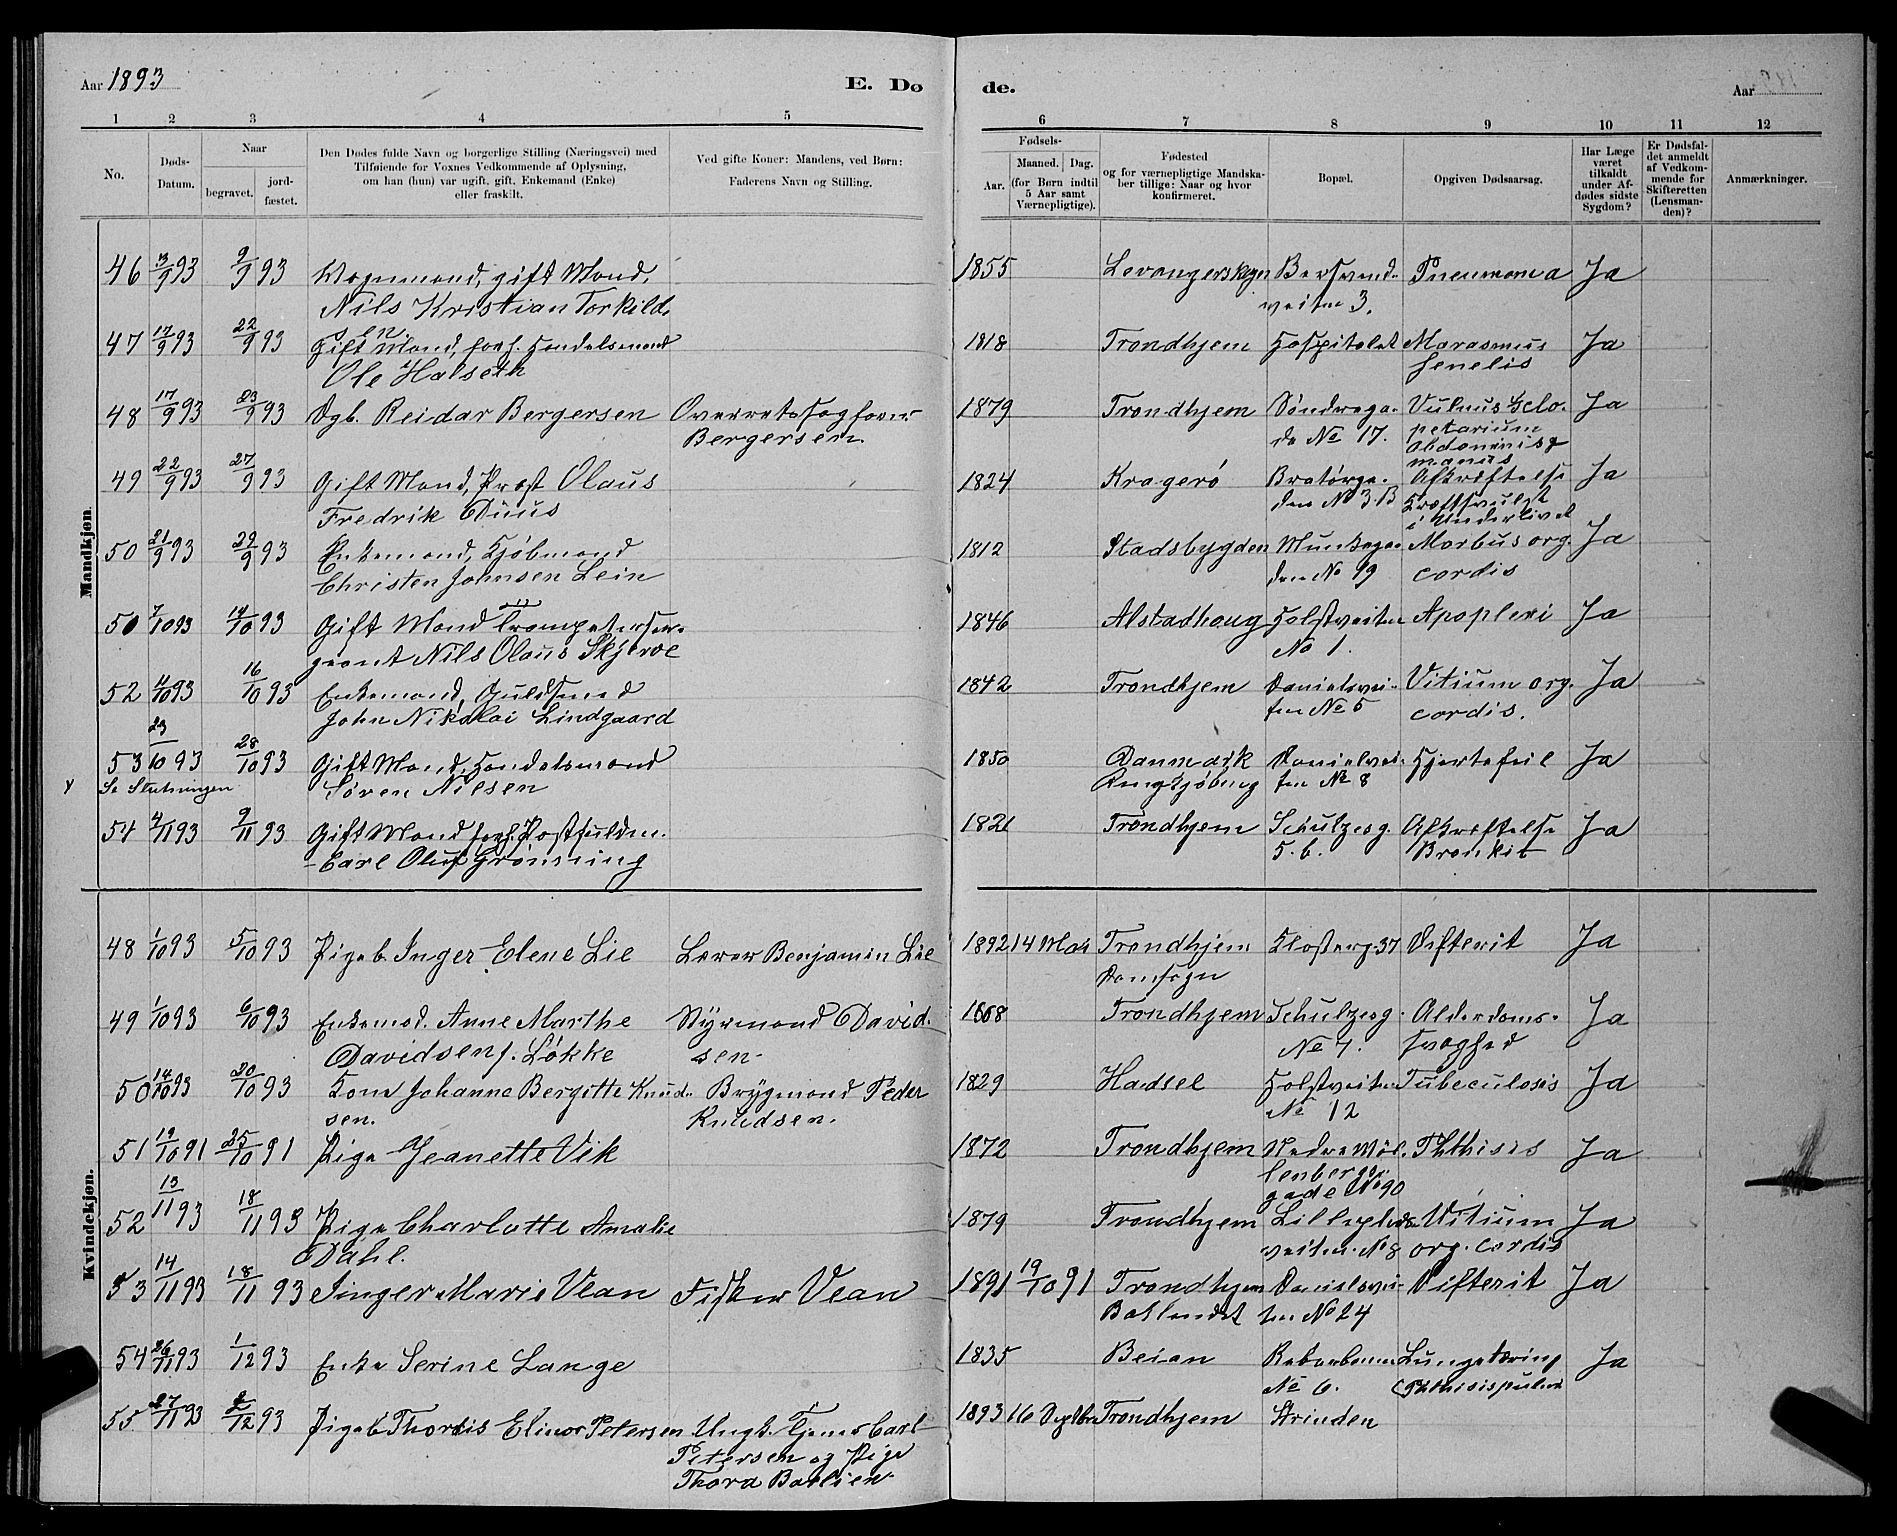 Aar 1893
E. Dø
de.
Aar
1 2 3 4 5
6 7 8 9 10 11 12
No.
Døds-
Datum.
Naar
begravet.
jord-
fæstet.
Den Dødes fulde Navn og borgerlige Stilling (Næringsvei) med
Tilføiende for Voxnes Vedkommende af Oplysning,
om han (hun) var ugift, gift, Enkemand (Enke)
eller fraskilt.
Ved gifte Koner: Mandens, ved Børn:
Faderens Navn og Stilling.
Fødsels-
Aar.
Maaned. Dag.
(for Børn indtil
5 Aar samt
Værnepligtige).
Fødested
og for værnepligtige Mandska-
ber tillige: Naar og hvor
konfirmeret.
Bopæl.
Opgiven Dødsaarsag.
Har Læge
været
tilkaldt
under Af-
dødes sidste
Sygdom?
Er Dødsfal-
det anmeldt
af Vedkom-
mende for
Skifteretten
(Lensman-
den)?
Anmærkninger.
Mandkjøn.
46 3/9 93 9/9 93 Vognmand, gift Mand, 1855 Levangerskogn Pneumonia Ja
Nils Kristian Torkild- veiten 3.
sen.
47 17/9 93 22/9 93 Gift Mand, forh. Handelsmand 1818 Trondhjem Hospitalet Marasmus Ja
Ole Halseth senelis
48 17/9 93 23/9 93 Dgb. Reidar Bergersen Overretssagfører 1879 Trondhjem Søndrega- Vulnus sclo- Ja
Bergersen. de No 17. petarium
abdominis &
manus
49 22/9 93 27/9 93 Gift Mand, Præst Olaus 1824 Kragerø Bratørga- Afkræftelse Ja
Fredrik Duus den No 3.B Kræftsvulst
i Underlivet
50 21/9 93 29/9 93 Enkemand, Kjøbmand 1812 Stadsbygden Munkega- Morbus org. Ja
Christen Johnsen Lein den No 19 cordis
50 7/10 93 14/10 93 Gift Mand Trompeterser- 1846 Alstadhaug Holstveiten Apoplexi Ja
geant Nils Olaus Skjerve No 1.
52 11/10 93 16/10 93 Enkemand, Guldsmed 1842 Trondhjem Danielsvei- Vitium org. Ja
John Nikolai Lindgaard ten No 5 cordis.
53 23/10 93 28/10 93 Gift Mand, Handelsmand 1850 Danmark Danielsvei- Hjertefeil Ja
Se Slutningen Søren Nilsen Ringkjøbing ten No 8
54 4/11 93 9/11 93 Gift Mand forh. Postfuldm. 1821 Trondhjem Schulzesg. Afkræftelse Ja
Carl Oluf Grønning 5.b. Bronkit
Kvindekjøn.
48 1/10 93 5/10 93 Pigeb. Inger Elene Lie Lærer Benjamin Lie 1892 14 Mai Trondhjem Klosterg. 37 Difterit Ja
Domsogn
49 1/10 93 6/10 93 Anne Marthe Styrmand David- Trondhjem Schulzesg. Alderdoms- Ja
Davidsen f. Løkke sen. No 7. svaghed
50 14/10 93 20/10 93 Kone Johanne Bergitte Knud- Brygmand Peder 1829 Hadsel Holstveiten Tubeculosis Ja
sen. Knudsen. No 12
51 19/10 91 25/10 91 Pige Jeanette Vik 1872 Trondhjem Nedre Møl- Phthisis Ja
lenbergs-
gade No 90
52 13/11 93 18/11 93 Pige Charlotte Amalie 1879 Trondhjem Vitium Ja
Dahl. veiten No 8 org. cordis
53 14/11 93 18/11 93 Inger Marie Vean Fisker Vean 1891 19/10 91 Trondhjem Danielsvei- Difterit Ja
Baklandet ten No 24
54 26/11 93 1/12 93 Enke Serine Lange 1835 Beian Lungetæring Ja
No 6. (Phthisis pulm
55 27/11 93 2/12 93 Pigeb. Thordis Elinor Petersen Ungk. Tjener Carl 1893 16 Septbr Trondhjem Strinden
Petersen og Pige
Thora